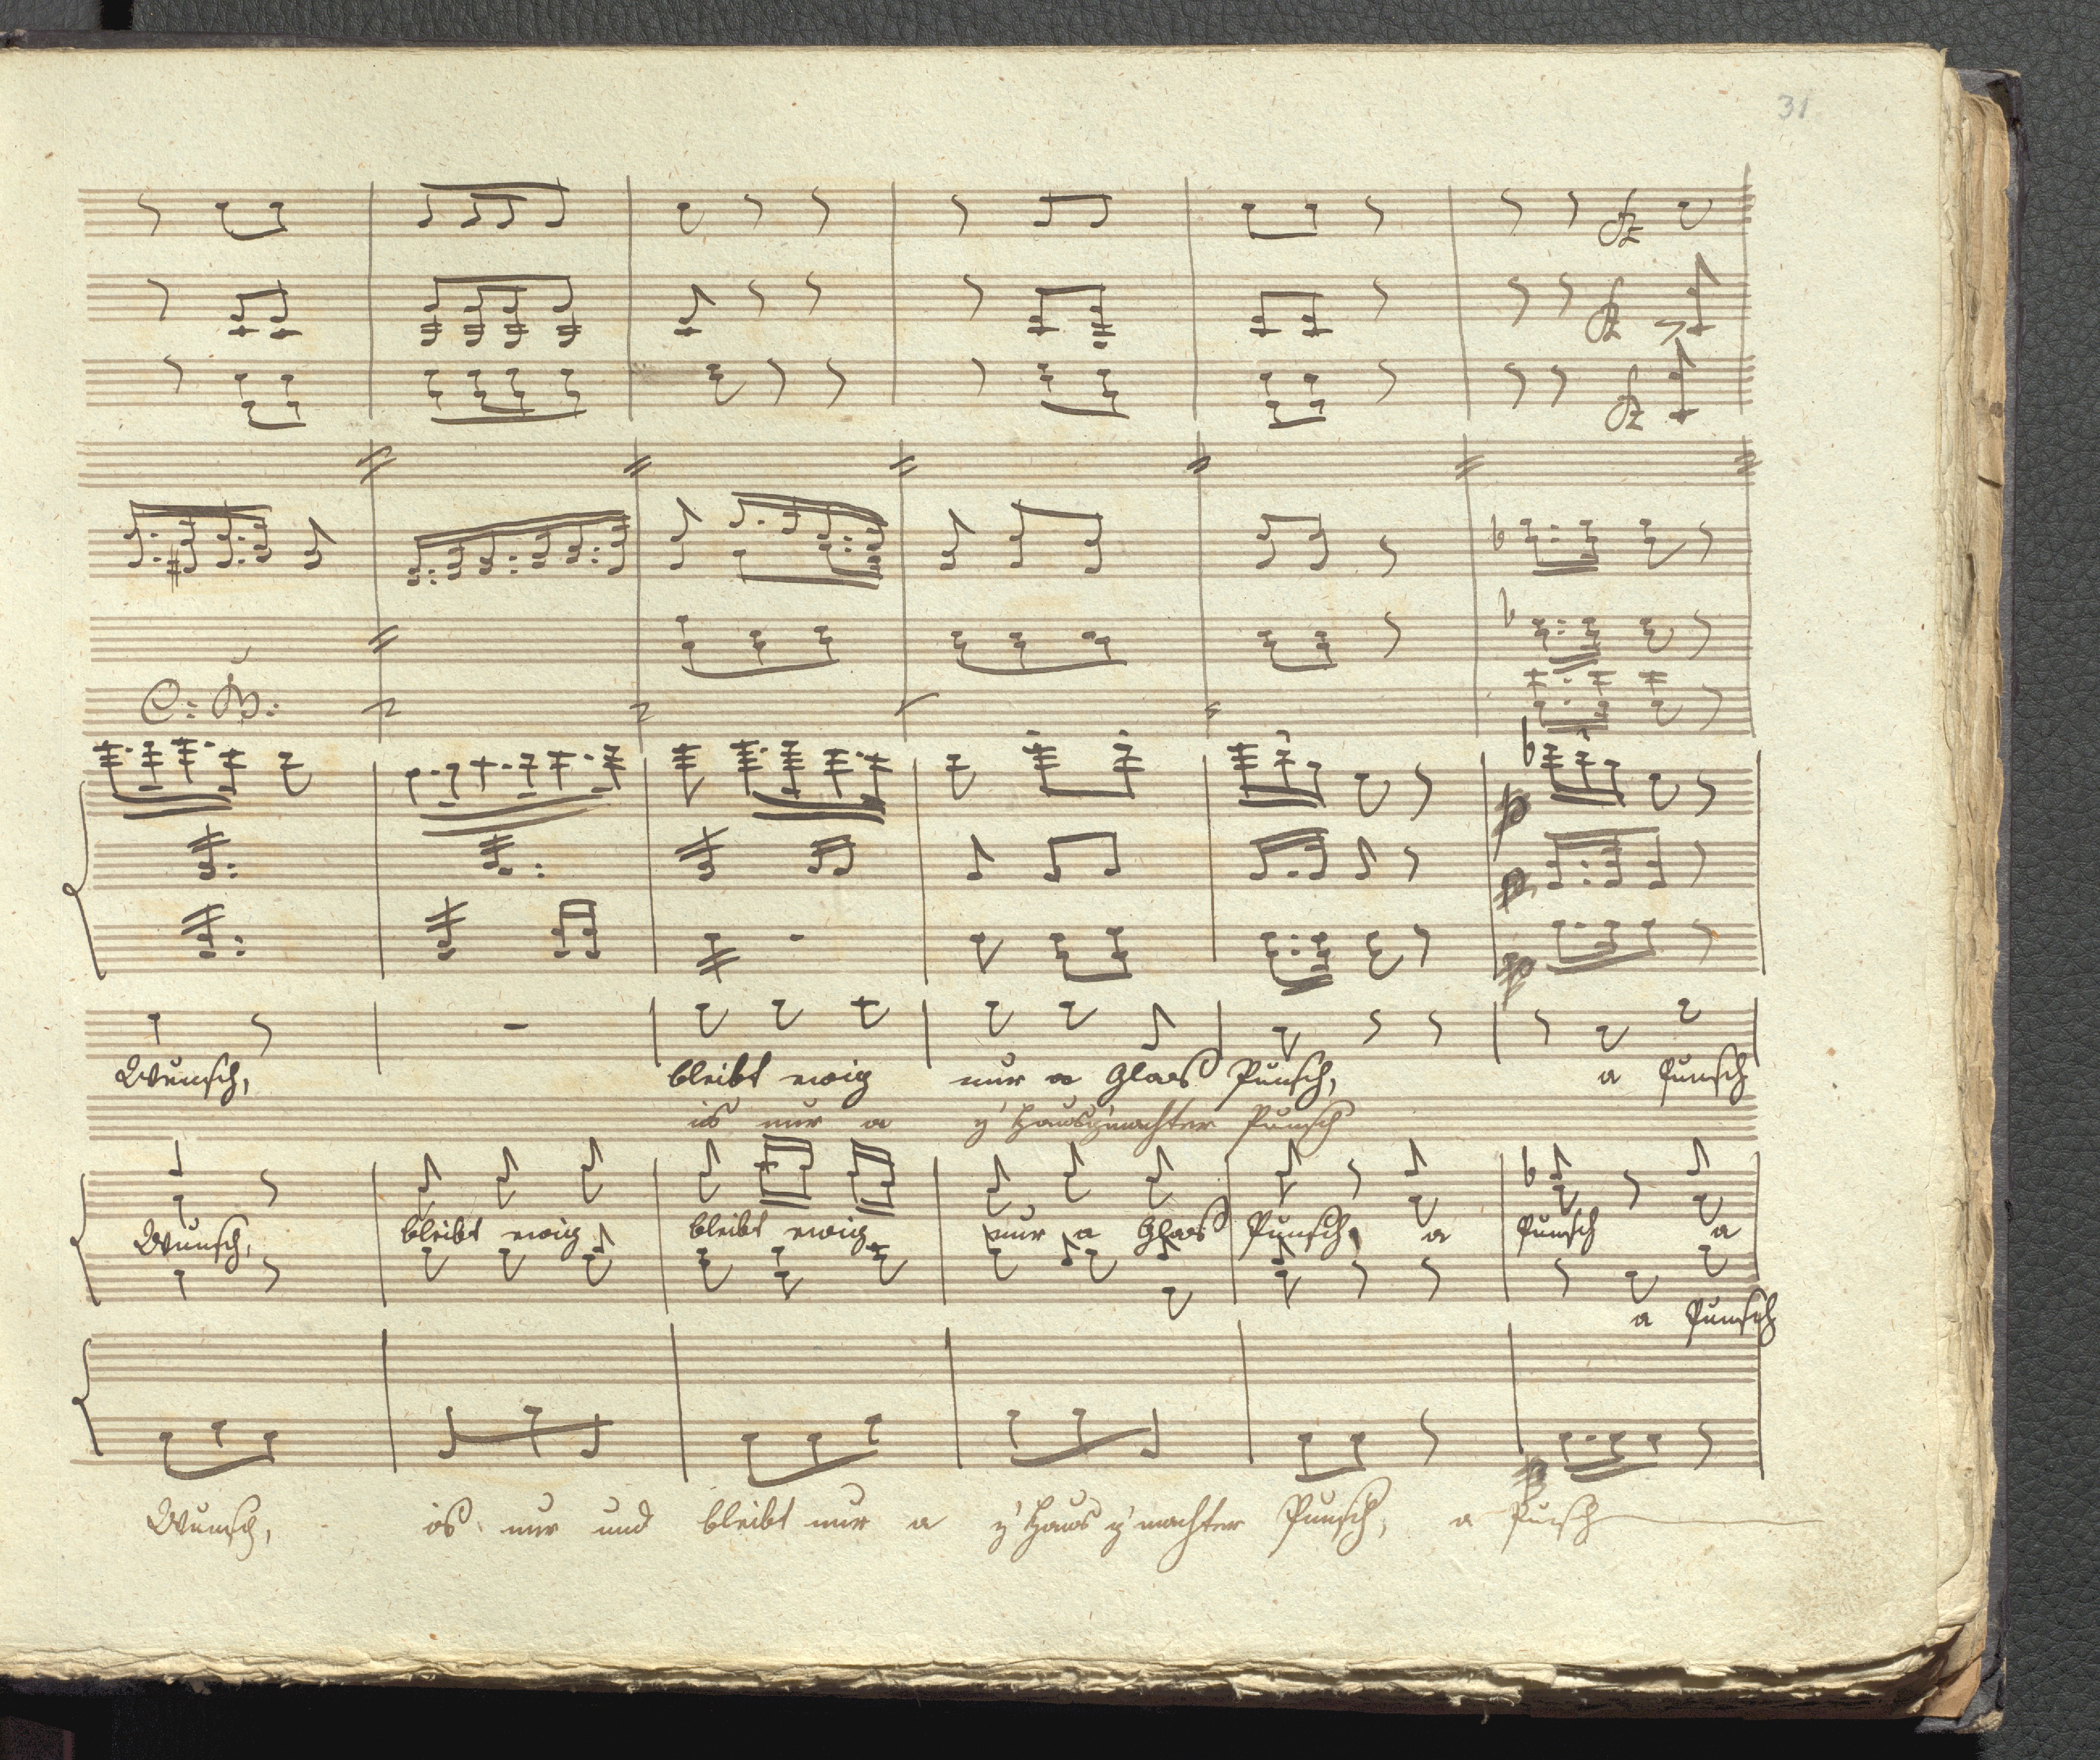 31
Wunsch, bleibt ewig nur a Glas Punsch, a Punsch
is nur a z'Hausg'machter Punsch
Wunsch, bleibt ewig bleibt ewig nur a Glas Punsch, a Punsch a
a Punsch
Wunsch, is nur und bleibt nur a z'Haus g'machter Punsch, a Punsch